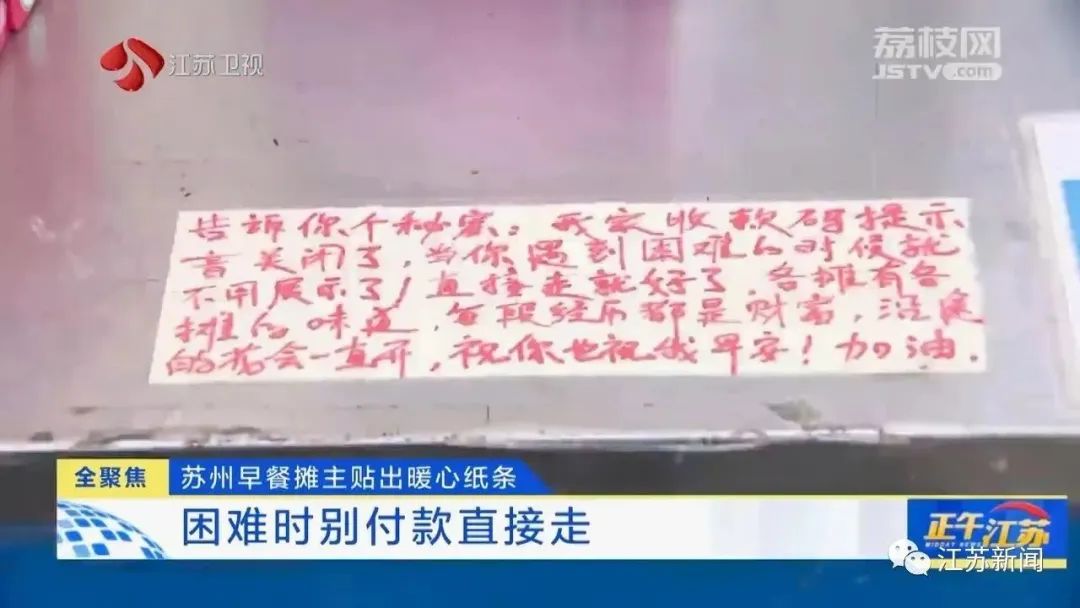 江苏卫视
荔枝网
JSTV.com
告诉你个秘密：我家收款码提示
音关闭了，当你遇到困难的时候就
不用展示了，直接走就好了，各摊有各
摊的味道，每段经历都是财富，沿途
的花会一直开，祝你也祝我早安！加油.
全聚焦
苏州早餐摊主贴出暖心纸条
困难时别付款直接走
正午江苏
MIDDAY NEWS
江苏新闻